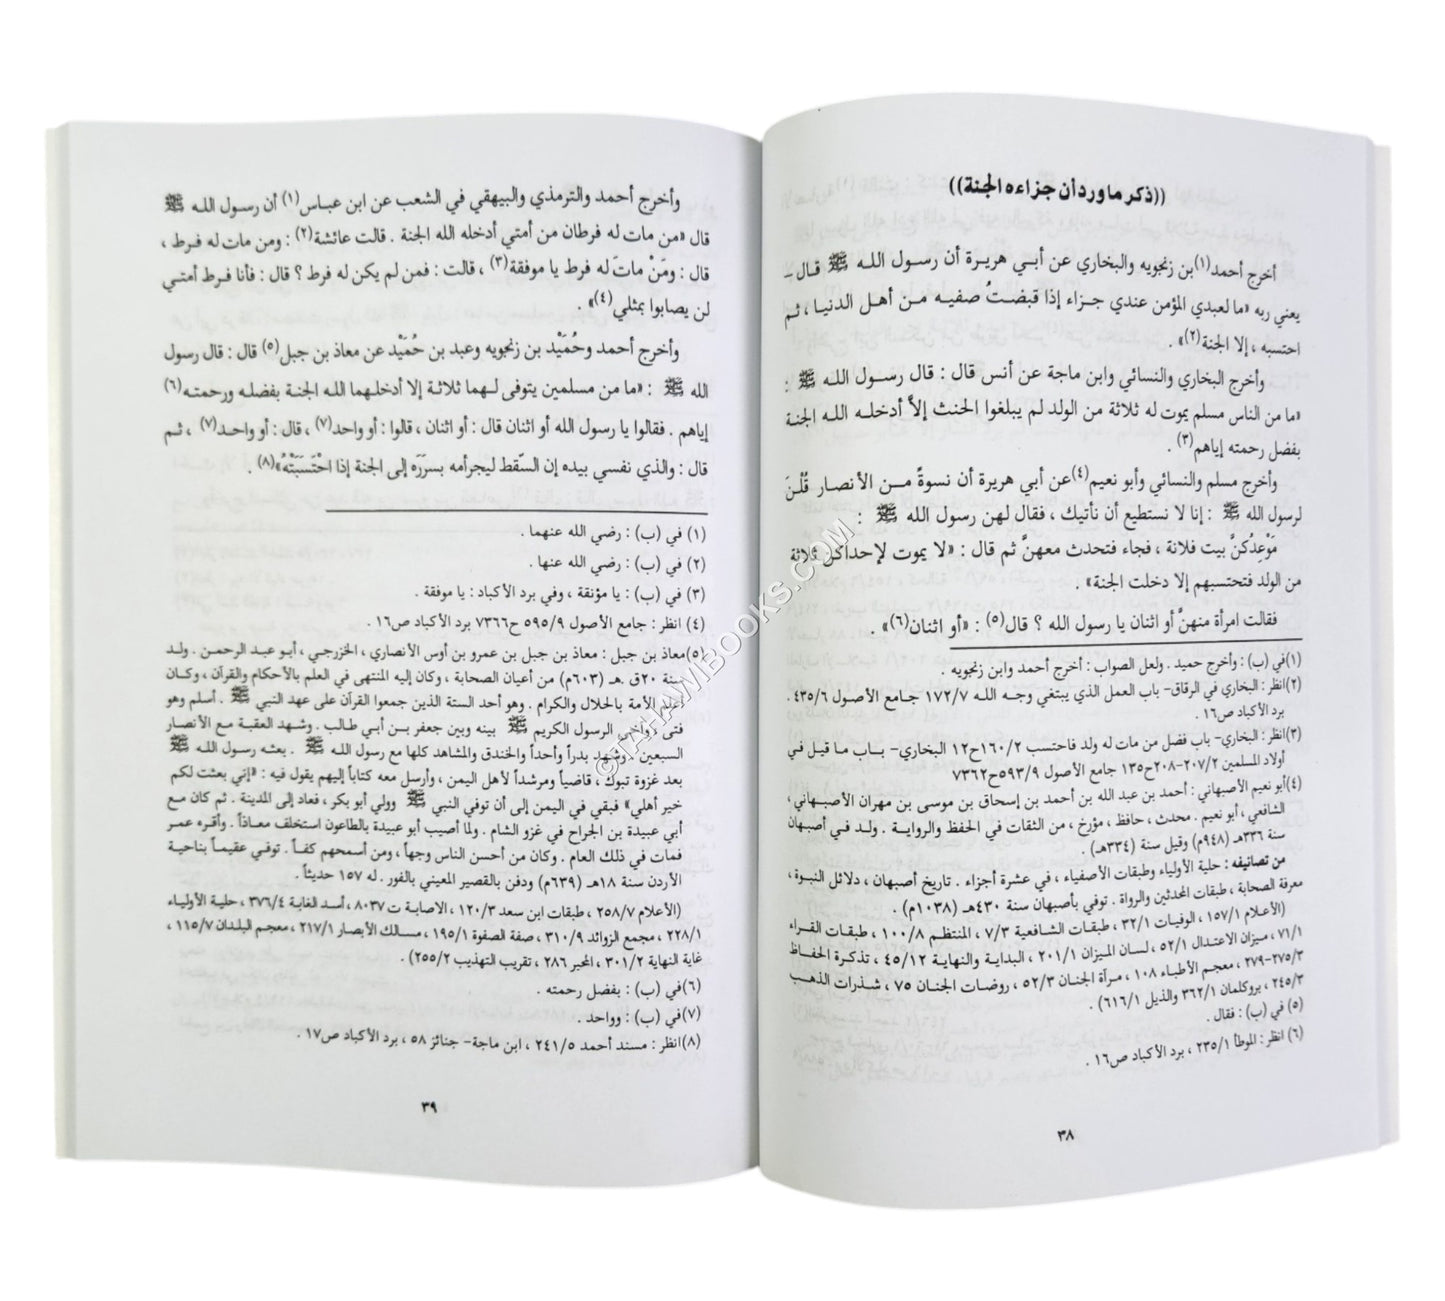 ((ذكر ما ورد أن جزاءه الجنة))
أخرج أحمد(١)بن زنجويه والبخاري عن أبي هريرة أن رسول اللـه ﷺ قال –
يعني ربه «ما لعبدي المؤمن عندي جزاء إذا قبضتُ صفيه من أهل الدنيا ، ثم
احتسبه ، إلا الجنة(٢)» .
وأخرج البخاري والنسائي وابن ماجة عن أنس قال : قال رسول اللـه ﷺ :
«ما من الناس مسلم يموت له ثلاثة من الولد لم يبلغوا الحنث إلاَّ أدخله اللـه الجنة
بفضل رحمته إياهم(٣) .
وأخرج مسلم والنسائي وأبو نعيم(٤)عن أبي هريرة أن نسوةً من الأنصار قُلْنَ
لرسول اللـه ﷺ : إنا لا نستطيع أن نأتيك ، فقال لهن رسول اللـه ﷺ :
مَوْعِدُكنَّ بيت فلانة ، فجاء فتحدث معهنَّ ثم قال : «لا يموت لإحداكن ثلاثة
من الولد فتحتسبهم إلا دخلت الجنة» .
فقالت امرأة منهنَّ أو اثنان يا رسول الله ؟ قال(٥) : «أو اثنان(٦)» .
(١)في (ب) : وأخرج حميد . ولعل الصواب : أخرج أحمد وابن زنجويه .
(٢)انظر : البخاري في الرقاق– باب العمل الذي يبتغي وجه اللـه ١٧٢/٧ جامع الأصول ٤٣٥/٦ .
برد الأكباد ص١٦ .
(٣)انظر : البخاري– باب فضل من مات له ولد فاحتسب ١٦٠/٢ح١٢ البخاري– باب ما قيل في
أولاد المسلمين ٢٠٧/٢–٢٠٨ح١٣٥ جامع الأصول ٥٩٣/٩ح٧٣٦٢
(٤)أبو نعيم الأصبهاني : أحمد بن عبد الله بن أحمد بن إسحاق بن موسى بن مهران الأصبهاني ،
الشافعي ، أبو نعيم . محدث ، حافظ ، مؤرخ ، من الثقات في الحفظ والرواية . ولد في أصبهان
سنة ٣٣٦هـ (٩٤٨م) وقيل سنة (٣٣٤هـ) .
من تصانيفه : حلية الأولياء وطبقات الأصفياء ، في عشرة أجزاء . تاريخ أصبهان ، دلائل النبوة ،
معرفة الصحابة ، طبقات المحدثين والرواة . توفي بأصبهان سنة ٤٣٠هـ (١٠٣٨م) .
(الأعلام ١٥٧/١ ، الوفيات ٣٢/١ ، طبقات الشافعية ٧/٣ ، المنتظم ١٠٠/٨ ، طبقات القراء
٧١/١ ، ميزان الاعتدال ٥٢/١ ، لسان الميزان ٢٠١/١ ، البداية والنهاية ٤٥/١٢ ، تذكرة الحفاظ
٢٧٥/٣–٢٧٩ ، معجم الأطباء ١٠٨ ، مرآة الجنان ٥٢/٣ ، روضات الجنان ٧٥ ، شذرات الذهب
٢٤٥/٣ ، بروكلمان ٣٦٢/١ والذيل ٦١٦/١) .
(٥) في (ب) : فقال .
(٦) انظر : الموطأ ٢٣٥/١ ، برد الأكباد ص١٦ .
٣٨
وأخرج أحمد والترمذي والبيهقي في الشعب عن ابن عباس(١) أن رسول اللـه ﷺ
قال «من مات له فرطان من أمتي أدخله الله الجنة . قالت عائشة(٢) : ومن مات له فرط ،
قال : ومَنْ ماتَ له فرط يا موفقة(٣) ، قالت : فمن لم يكن له فرط ؟ قال : فأنا فرط أمتي
لن يصابوا بمثلي(٤)» .
وأخرج أحمد وحُمَيْد بن زنجويه وعبد بن حُمَيْد عن معاذ بن جبل(٥) قال : قال رسول
الله ﷺ : «ما من مسلمين يتوفى لهما ثلاثة إلا أدخلهما اللـه الجنة بفضله ورحمته(٦)
إياهم . فقالوا يا رسول الله أو اثنان قال : أو اثنان ، قالوا : أو واحد(٧) ، قال : أو واحد(٧) ، ثم
قال : والذي نفسي بيده إن السَّقط ليجرأمه بسرَرَه إلى الجنة إذا احْتَسَبَتْهُ»(٨) .
(١) في (ب) : رضي الله عنهما .
(٢) في (ب) : رضي الله عنها .
(٣) في (ب) : يا مؤنقة ، وفي برد الأكباد : يا موفقة .
(٤) انظر : جامع الأصول ٥٩٥/٩ ح٧٣٦٦ برد الأكباد ص١٦ .
(٥)معاذ بن جبل : معاذ بن جبل بن عمرو بن أوس الأنصاري ، الخزرجي ، أبو عبد الرحمن . ولد
سنة ٢٠ق .هـ (٦٠٣م) من أعيان الصحابة ، وكان إليه المنتهى في العلم بالأحكام والقرآن ، وكان
أعلم الأمة بالحلال والحرام . وهو أحد الستة الذين جمعوا القرآن على عهد النبي ﷺ . أسلم وهو
فتى ، وآخى الرسول الكريم ﷺ بينه وبين جعفر بن أبي طالب . وشهد العقبة مع الأنصار
السبعين ، وشهد بدراً وأحداً والخندق والمشاهد كلها مع رسول اللـه ﷺ . بعثه رسول اللـه ﷺ
بعد غزوة تبوك ، قاضياً ومرشداً لأهل اليمن ، وأرسل معه كتاباً إليهم يقول فيه : «إني بعثت لكم
خير أهلي» فبقي في اليمن إلى أن توفي النبي ﷺ وولي أبو بكر ، فعاد إلى المدينة . ثم كان مع
أبي عبيدة بن الجراح في غزو الشام . ولما أصيب أبو عبيدة بالطاعون استخلف معاذاً . وأقره عمر
فمات في ذلك العام . وكان من أحسن الناس وجهاً ، ومن أسمحهم كفاً . توفي عقيماً بناحية
الأردن سنة ١٨هـ (٦٣٩م) ودفن بالقصير المعيني بالغور . له ١٥٧ حديثاً .
(الأعلام ٢٥٨/٧ ، طبقات ابن سعد ١٢٠/٣ ، الاصابة ت ٨٠٣٧ ، أسد الغابة ٣٧٦/٤ ، حلية الأولياء
٢٢٨/١ ، مجمع الزوائد ٣١٠/٩ ، صفة الصفوة ١٩٥/١ ، مسالك الأبصار ٢١٧/١ ، معجم البلدان ١١٥/٧ ،
غاية النهاية ٣٠١/٢ ، المحبر ٢٨٦ ، تقريب التهذيب ٢٥٥/٢) .
(٦)في (ب) : بفضل رحمته .
(٧)في (ب) : وواحد .
(٨)انظر : مسند أحمد ٢٤١/٥ ، ابن ماجة– جنائز ٥٨ ، برد الأكباد ص١٧ .
٣٩
©TAHAMIBOOKS.COM